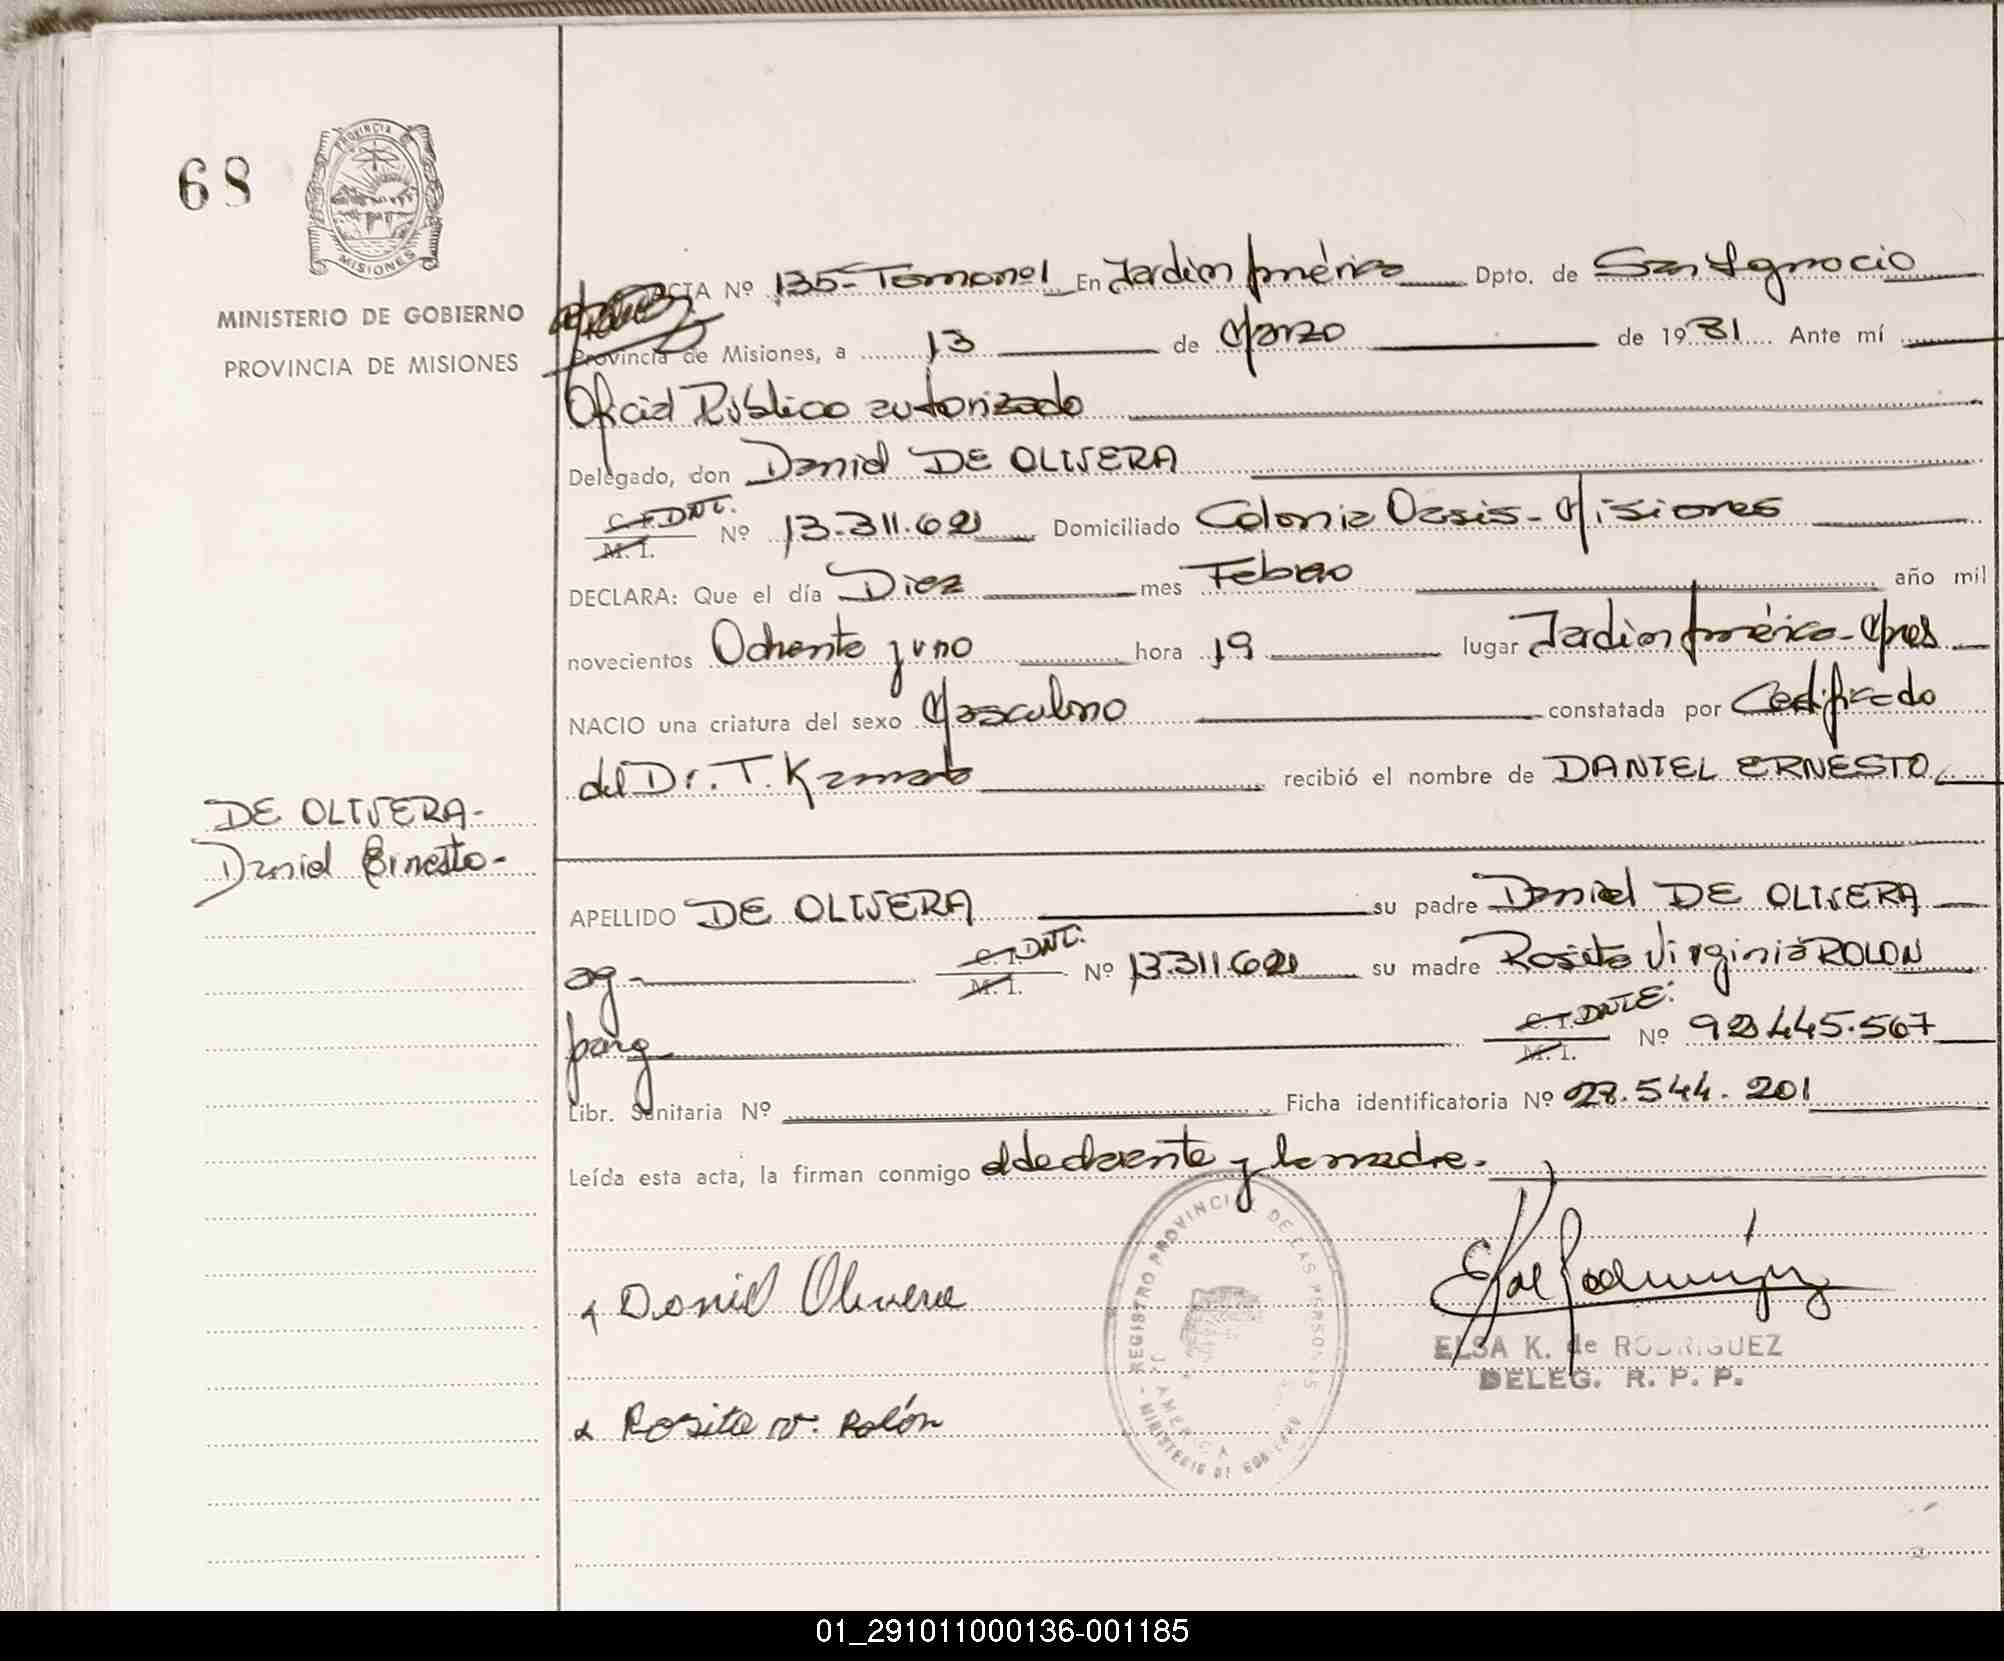 68
PROVINCIA
MISIONES
MINISTERIO DE GOBIERNO
PROVINCIA DE MISIONES
ACTA Nº 135- Tomo nº1 En Jardín América Dpto. de San Ignacio
Provincia de Misiones, a 13 de Marzo de 1981 Ante mí
Oficial Público autorizado
Delegado, don Daniel DE OLIVERA
C. I. DNI.
M. I. Nº 13.311.621 Domiciliado Colonia Oasis - Misiones
DECLARA: Que el día Diez mes Febrero año mil
novecientos Ochenta y uno hora 19 lugar Jardín América- Mnes
NACIO una criatura del sexo Masculino constatada por Certificado
del Dr. T. recibió el nombre de DANIEL ERNESTO
DE OLIVERA-
Daniel Ernesto-
APELLIDO DE OLIVERA su padre Daniel DE OLIVERA
arg- C. I. DNI. M. I. Nº 13.311.621 su madre Rosita Virginia ROLON
parg- C. I. DNIE: M. I. Nº 92.445.567
Libr. Sanitaria Nº Ficha identificatoria Nº 28.544.201
Leída esta acta, la firman conmigo el declarante y la madre.
Daniel Olivera
Elsa Rodriguez
ELSA K. de RODRIGUEZ
DELEG. R. P. P.
Rosita V. Rolón
REGISTRO PROVINCIAL DE LAS PERSONAS
J. AMERICA
- MINISTERIO DE GOBIERNO
01_291011000136-001185